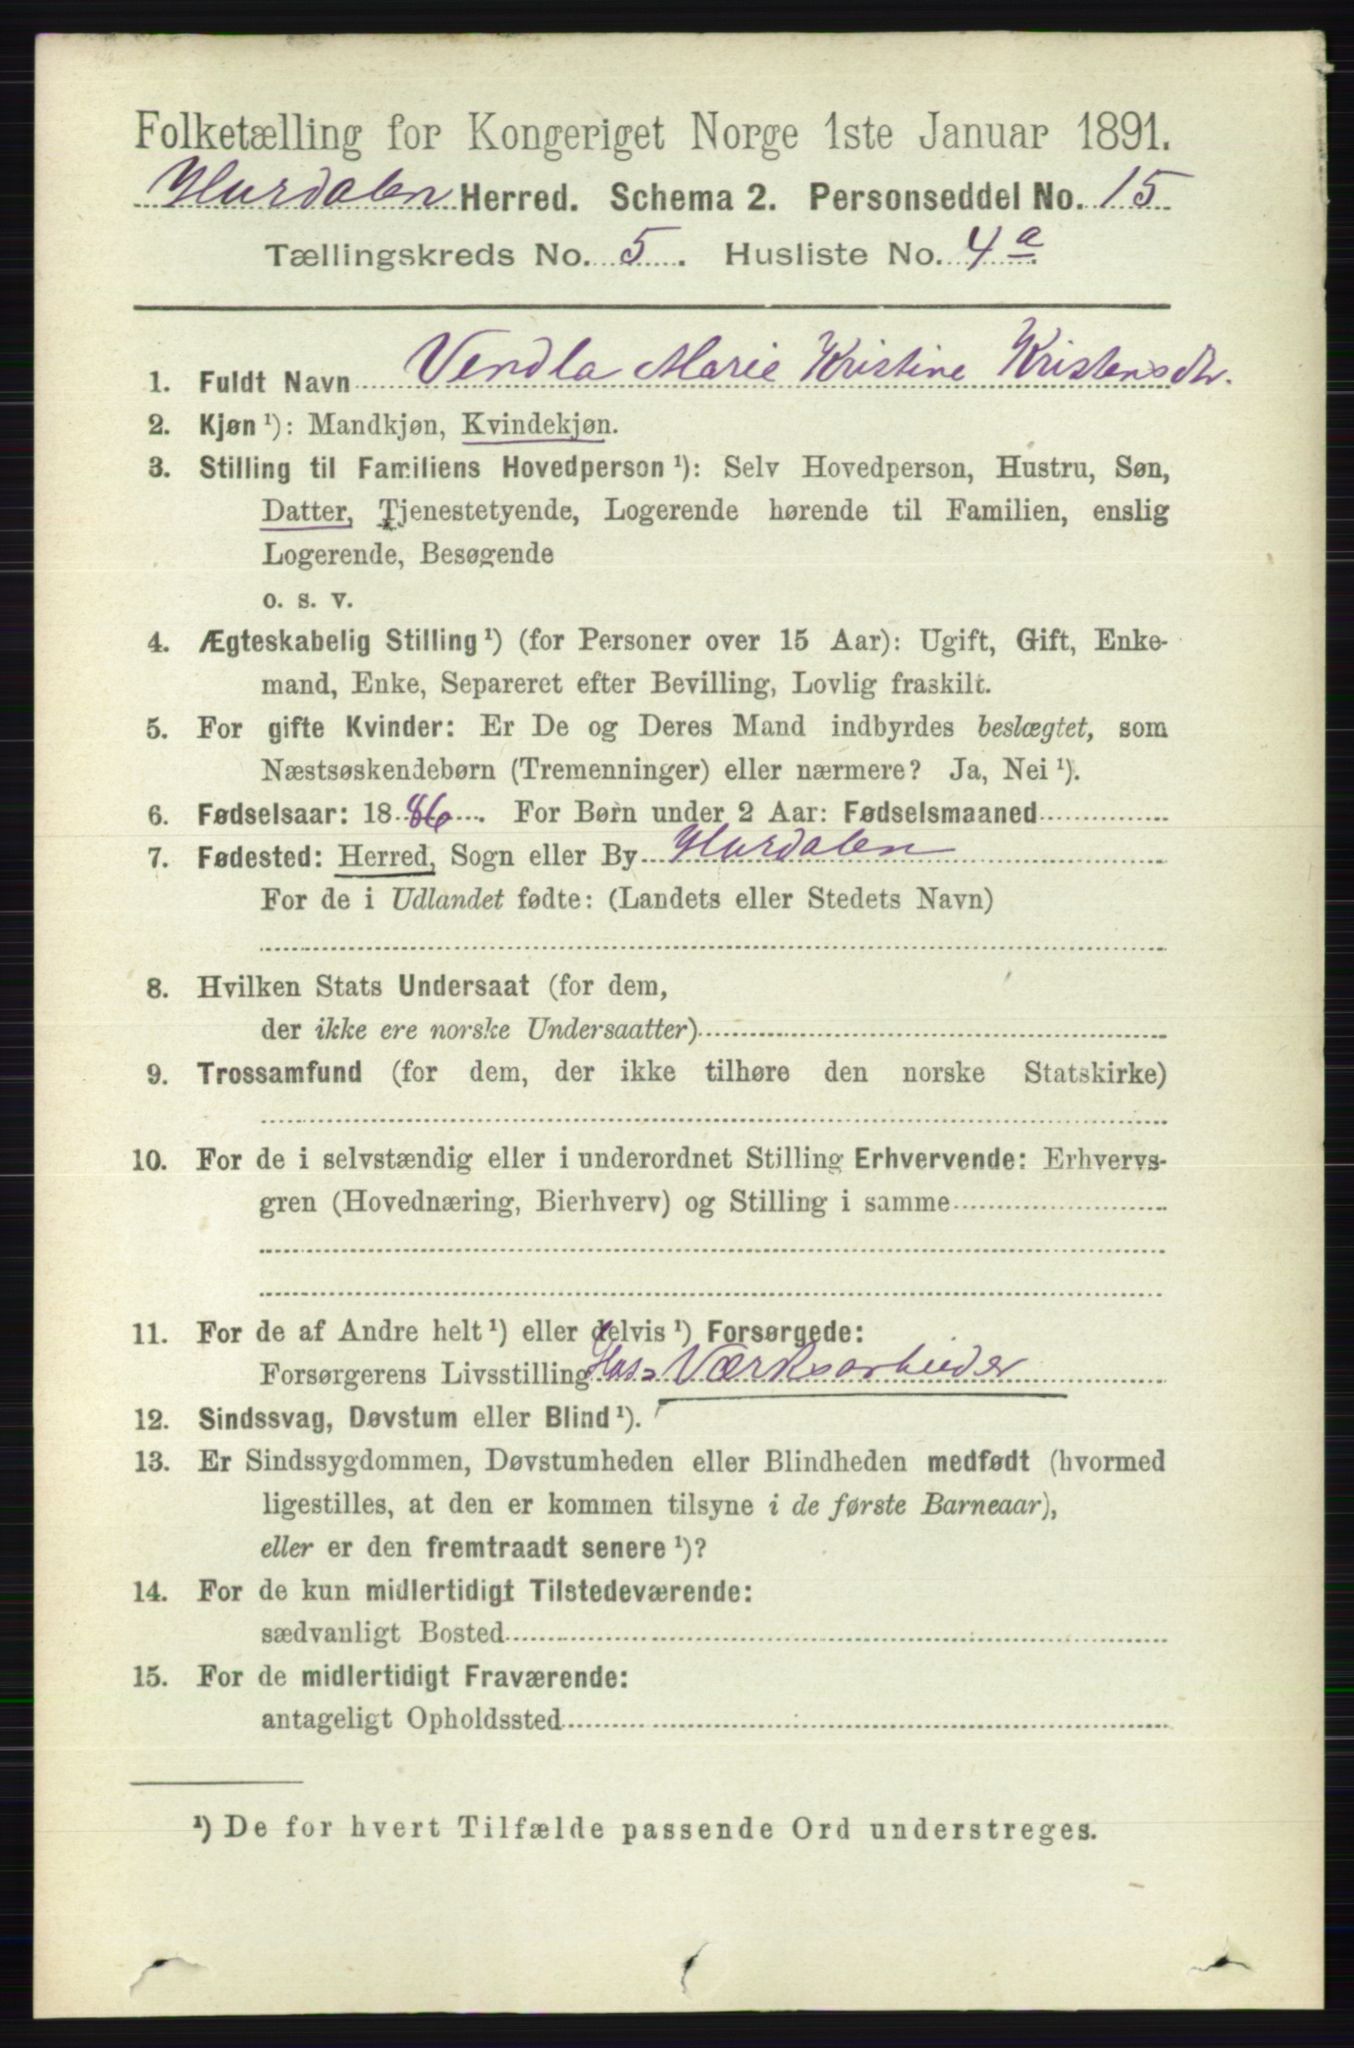 Folketælling for Kongeriget Norge 1ste Januar 1891.
Hurdalen Herred. Schema 2. Personseddel No. 15
Tællingskreds No. 5. Husliste No. 4 a
1. Fuldt Navn Vendla Marie Kristine Kristensdtr.
2. Kjøn ¹): Mandkjøn, Kvindekjøn.
3. Stilling til Familiens Hovedperson ¹): Selv Hovedperson, Hustru, Søn,
Datter, Tjenestetyende, Logerende hørende til Familien, enslig
Logerende, Besøgende
o. s. v.
4. Ægteskabelig Stilling ¹) (for Personer over 15 Aar): Ugift, Gift, Enke-
mand, Enke, Separeret efter Bevilling, Lovlig fraskilt.
5. For gifte Kvinder: Er De og Deres Mand indbyrdes beslægtet, som
Næstsøskendebørn (Tremenninger) eller nærmere? Ja, Nei ¹).
6. Fødselsaar: 1886. For Børn under 2 Aar: Fødselsmaaned
7. Fødested: Herred, Sogn eller By Hurdalen
For de i Udlandet fødte: (Landets eller Stedets Navn)
8. Hvilken Stats Undersaat (for dem,
der ikke ere norske Undersaatter)
9. Trossamfund (for dem, der ikke tilhøre den norske Statskirke)
10. For de i selvstændig eller i underordnet Stilling Erhvervende: Erhvervs-
gren (Hovednæring, Bierhverv) og Stilling i samme
11. For de af Andre helt ¹) eller delvis ¹) Forsørgede:
Forsørgerens Livsstilling Værksarbeider
12. Sindssvag, Døvstum eller Blind ¹).
13. Er Sindssygdommen, Døvstumheden eller Blindheden medfødt (hvormed
ligestilles, at den er kommen tilsyne i de første Barneaar),
eller er den fremtraadt senere ¹)?
14. For de kun midlertidigt Tilstedeværende:
sædvanligt Bosted
15. For de midlertidigt Fraværende:
antageligt Opholdssted
¹) De for hvert Tilfælde passende Ord understreges.